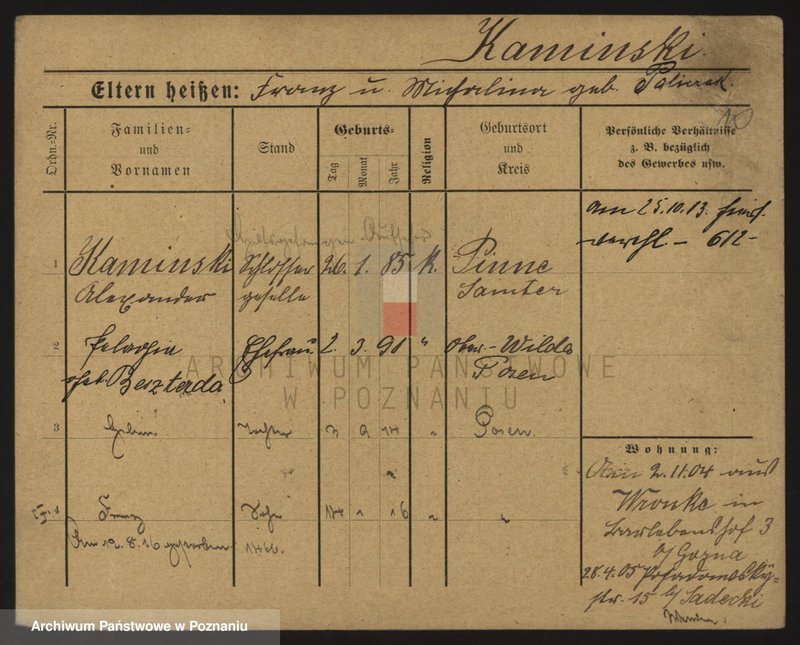 Kaminski.
Eltern heißen: Franz u. Michalina geb.
Ordn.-Nr.
Familien-
und
Vornamen
Stand
Geburts-
Tag
Monat
Jahr
Religion
Geburtsort
und
Kreis
Persönliche Verhältnisse
z. B. bezüglich
des Gewerbes usw.
am 25.10.13.
612-
1 Kaminski Schlosser 26. 1. 85 K. Pinne
Alexander geselle Samter
2 Ehefrau 2. 3. 91 " Ober-Wilda
geb. Posen
ARCHIWUM PAŃSTWOWE
W POZNANIU
3 Tochter 9 14 " Posen
4 Franz Sohn 14 16 " "
Am 12. 8. 16 gestorben
Wohnung:
2.11.04 aus
Wronke in
Barlebenshof 3
b/ Gorna
28.4.05 Posadowsky-
str. 15 b/ Sadecki
Archiwum Państwowe w Poznaniu